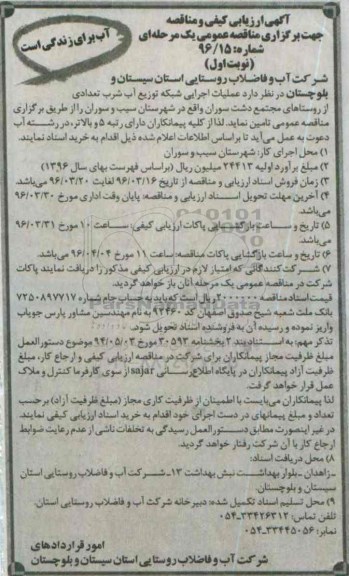 آگهی ارزیابی کیفی و مناقصه
جهت برگزاری مناقصه عمومی یک مرحله‌ای
شماره: ۹۶/۱۵
(نوبت اول)
آب برای زندگی است
شرکت آب و فاضلاب روستایی استان سیستان و
بلوچستان در نظر دارد عملیات اجرایی شبکه توزیع آب شرب تعدادی
از روستاهای مجتمع دشت سوران واقع در شهرستان سیب و سوران را از طریق برگزاری
مناقصه عمومی تامین نماید. لذا از کلیه پیمانکاران دارای رتبه ۵ و بالاتر، در رشته آب
دعوت به عمل می‌آید تا براساس اطلاعات اعلام شده ذیل اقدام به خرید اسناد نمایند.
۱) محل اجرای کار: شهرستان سیب و سوران
۲) مبلغ برآورد اولیه ۲۴۴۱۳ میلیون ریال (براساس فهرست بهای سال ۱۳۹۶)
۳) زمان فروش اسناد ارزیابی و مناقصه از تاریخ ۹۶/۰۳/۱۶ لغایت ۹۶/۰۳/۲۰ می‌باشد.
۴) آخرین مهلت تحویل اسناد ارزیابی و مناقصه: پایان وقت اداری مورخ ۹۶/۰۳/۳۰
می‌باشد.
۵) تاریخ و ساعت بازگشایی پاکات ارزیابی کیفی: ساعت ۱۰ مورخ ۹۶/۰۳/۳۱
می‌باشد.
۶) تاریخ و ساعت بازگشایی پاکات مناقصه: ساعت ۱۱ مورخ ۹۶/۰۴/۰۴ می‌باشد.
۷) شرکت کنندگانی که امتیاز لازم در ارزیابی کیفی مذکور را دریافت نمایند پاکات
شرکت در مناقصه عمومی یک مرحله آنان باز خواهد گردید.
قیمت اسناد مناقصه ۲۰۰۰۰۰۰ ریال است که باید به حساب جام شماره ۷۲۵۰۸۹۷۷۱۷
بانک ملت شعبه شیخ صدوق اصفهان کد ۹۲۴۶۰ به نام مهندسین مشاور پارس جویاب
واریز نموده و رسیده آن به فروشنده اسناد تحویل شود.
تذکر مهم: به استناد بند ۲ بخشنامه ۳۰۵۹۳ مورخ ۹۴/۰۵/۰۳ موضوع دستورالعمل
مبلغ ظرفیت مجاز پیمانکاران برای شرکت در مناقصه ارزیابی کیفی و ارجاع کار، مبلغ
ظرفیت آزاد پیمانکاران در پایگاه اطلاع‌رسانی sajar از سوی کارفرما کنترل و ملاک
عمل قرار خواهد گرفت.
لذا پیمانکاران می‌بایست با اطمینان از ظرفیت کاری مجاز (مبلغ ظرفیت آزاد) برحسب
تعداد و مبلغ پیمانهای در دست اجرای خود اقدام به خرید اسناد ارزیابی کیفی نمایند.
در غیر اینصورت مطابق دستورالعمل رسیدگی به تخلفات ناشی از عدم رعایت ضوابط
ارجاع کار با آن شرکت رفتار خواهد گردید.
۸) محل دریافت اسناد:
ـ زاهدان ـ بلوار بهداشت نبش بهداشت ۱۳ ـ شرکت آب و فاضلاب روستایی استان
سیستان و بلوچستان.
۹) محل تسلیم اسناد تکمیل شده: دبیرخانه شرکت آب و فاضلاب روستایی استان.
تلفن تماس: ۳۳۴۲۶۳۱۲ـ۰۵۴
نمابر: ۳۳۴۴۵۰۵۶ـ۰۵۴
امور قراردادهای
شرکت آب و فاضلاب روستایی استان سیستان و بلوچستان